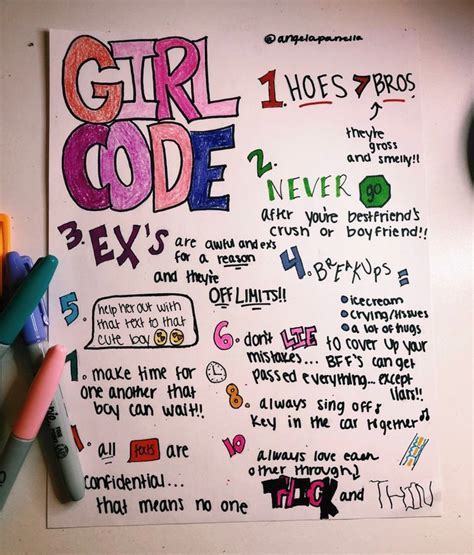 @angelaparrella
GIRL
CODE
1. HOES > BROS
they're
gross
and smelly!!
2.
NEVER go
after you're bestfriend's
crush or boyfriend!!
3. EX'S are awful and exs
for a reason
and they're
OFF LIMITS!!
4. BREAKUPS =
icecream
crying/tissues
a lot of hugs
5. help her out with
that text to that
cute boy
6. don't LIE
to cover up your
mistakes... BFF's can get
passed everything... except
liars!!
7.
make time for
one another that
boy can wait!!
8. always sing off
key in the car together
1. all texts are
confidential...
that means no one
10 always love each
other through
THICK and THIN